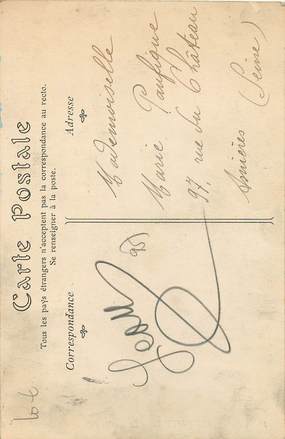 Carte Postale
Tous les pays étrangers n'acceptent pas la correspondance au recto.
Se renseigner à la poste.
Correspondance
Adresse
Mademoiselle
Marie
97 rue du Château
Asnières (Seine)